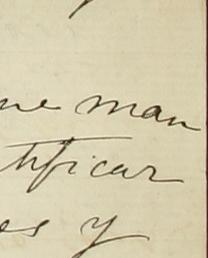 ne man
tificar
es y